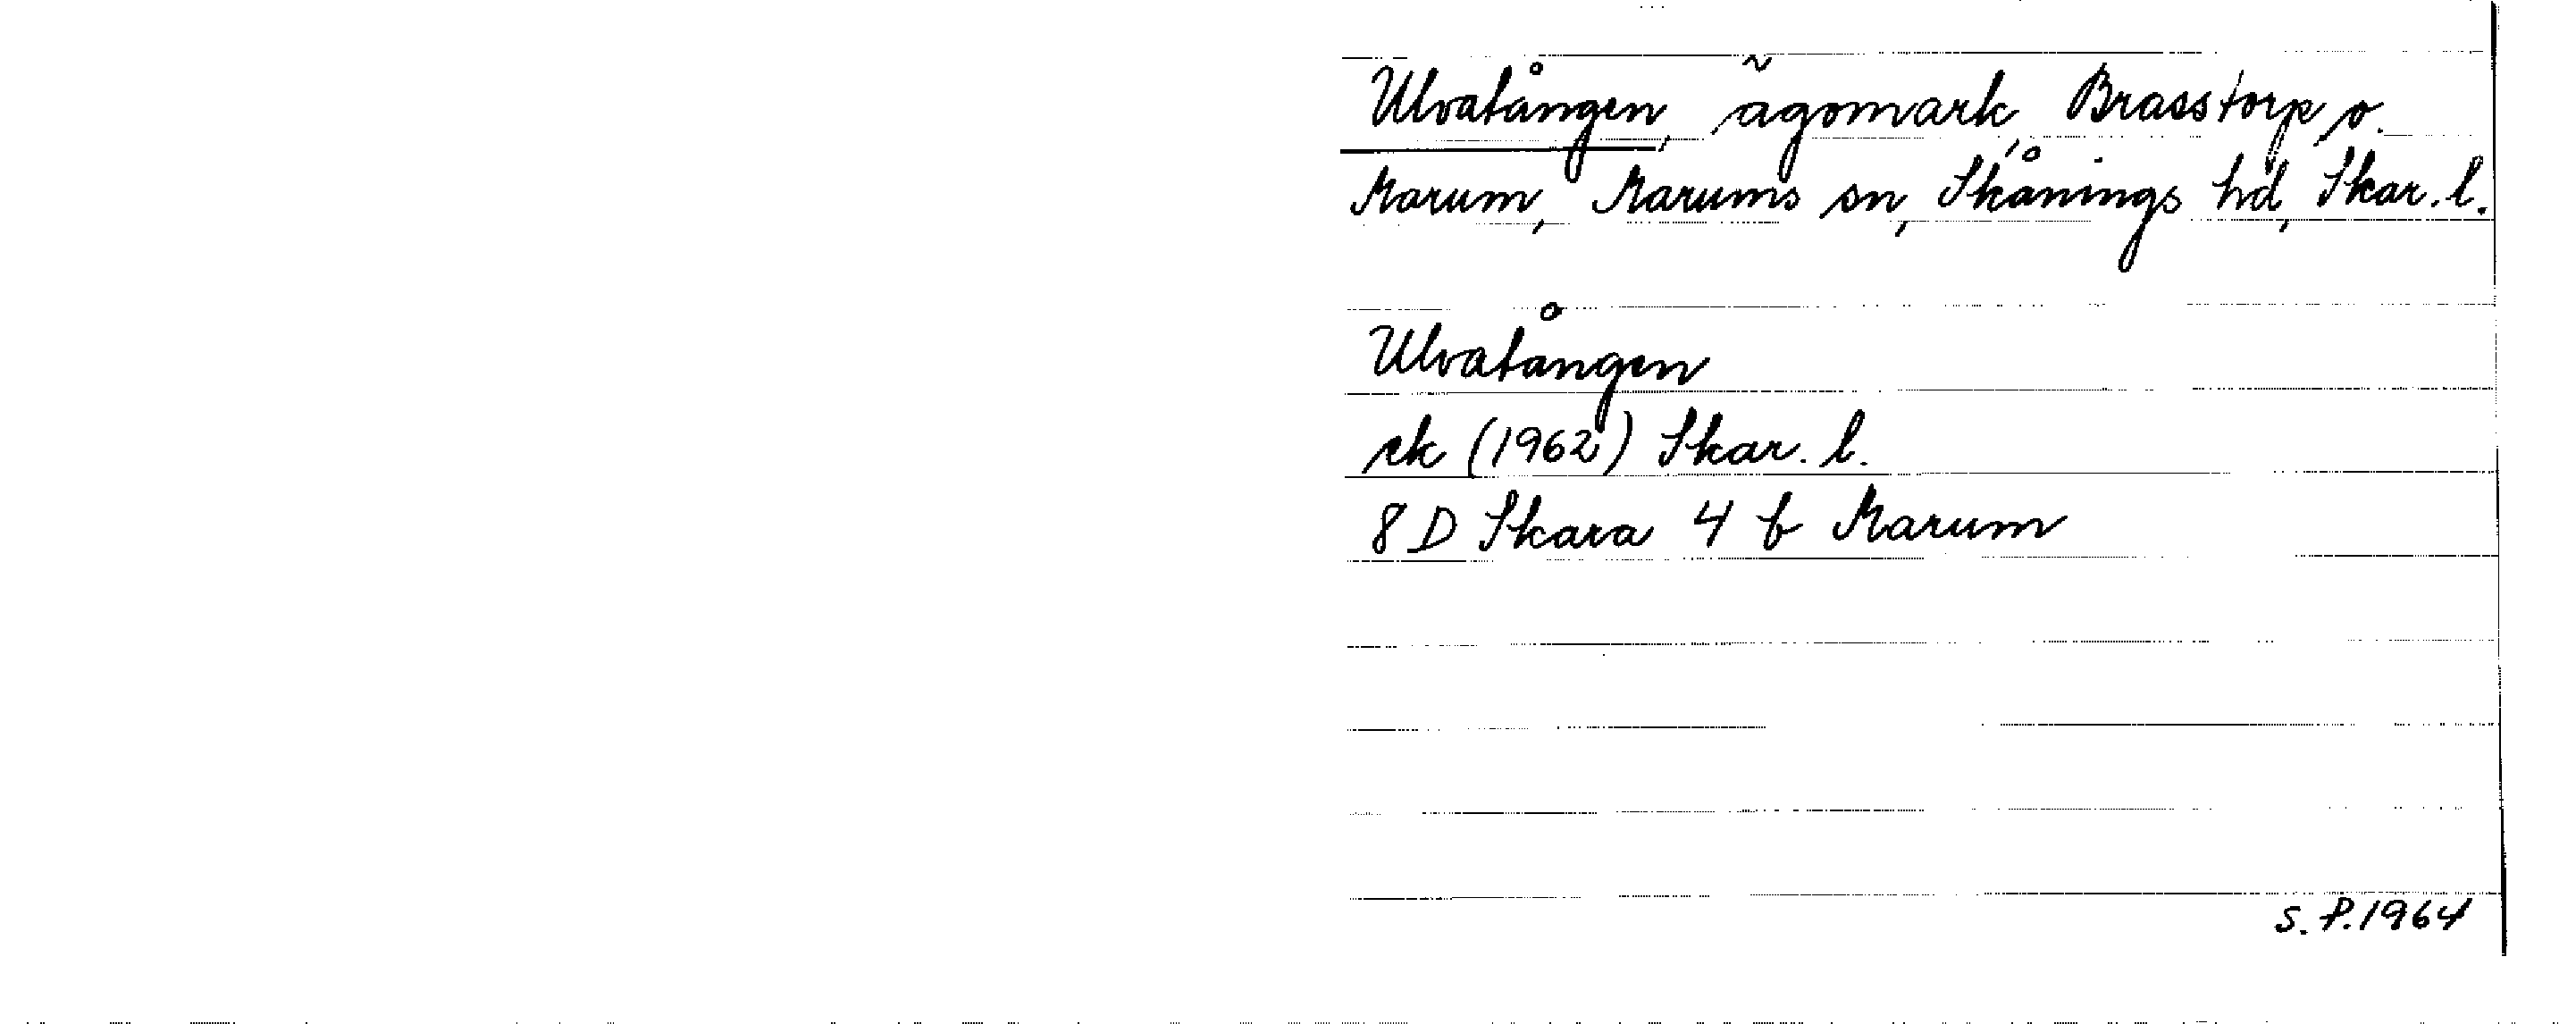 Ulvatången, ägomark, Brasstorp o.
Marum, Marums sn, Skånings hd, Skar. l.
Ulvatången
ek (1962) Skar. l.
8 D Skara 4 b Marum
S. P. 1964